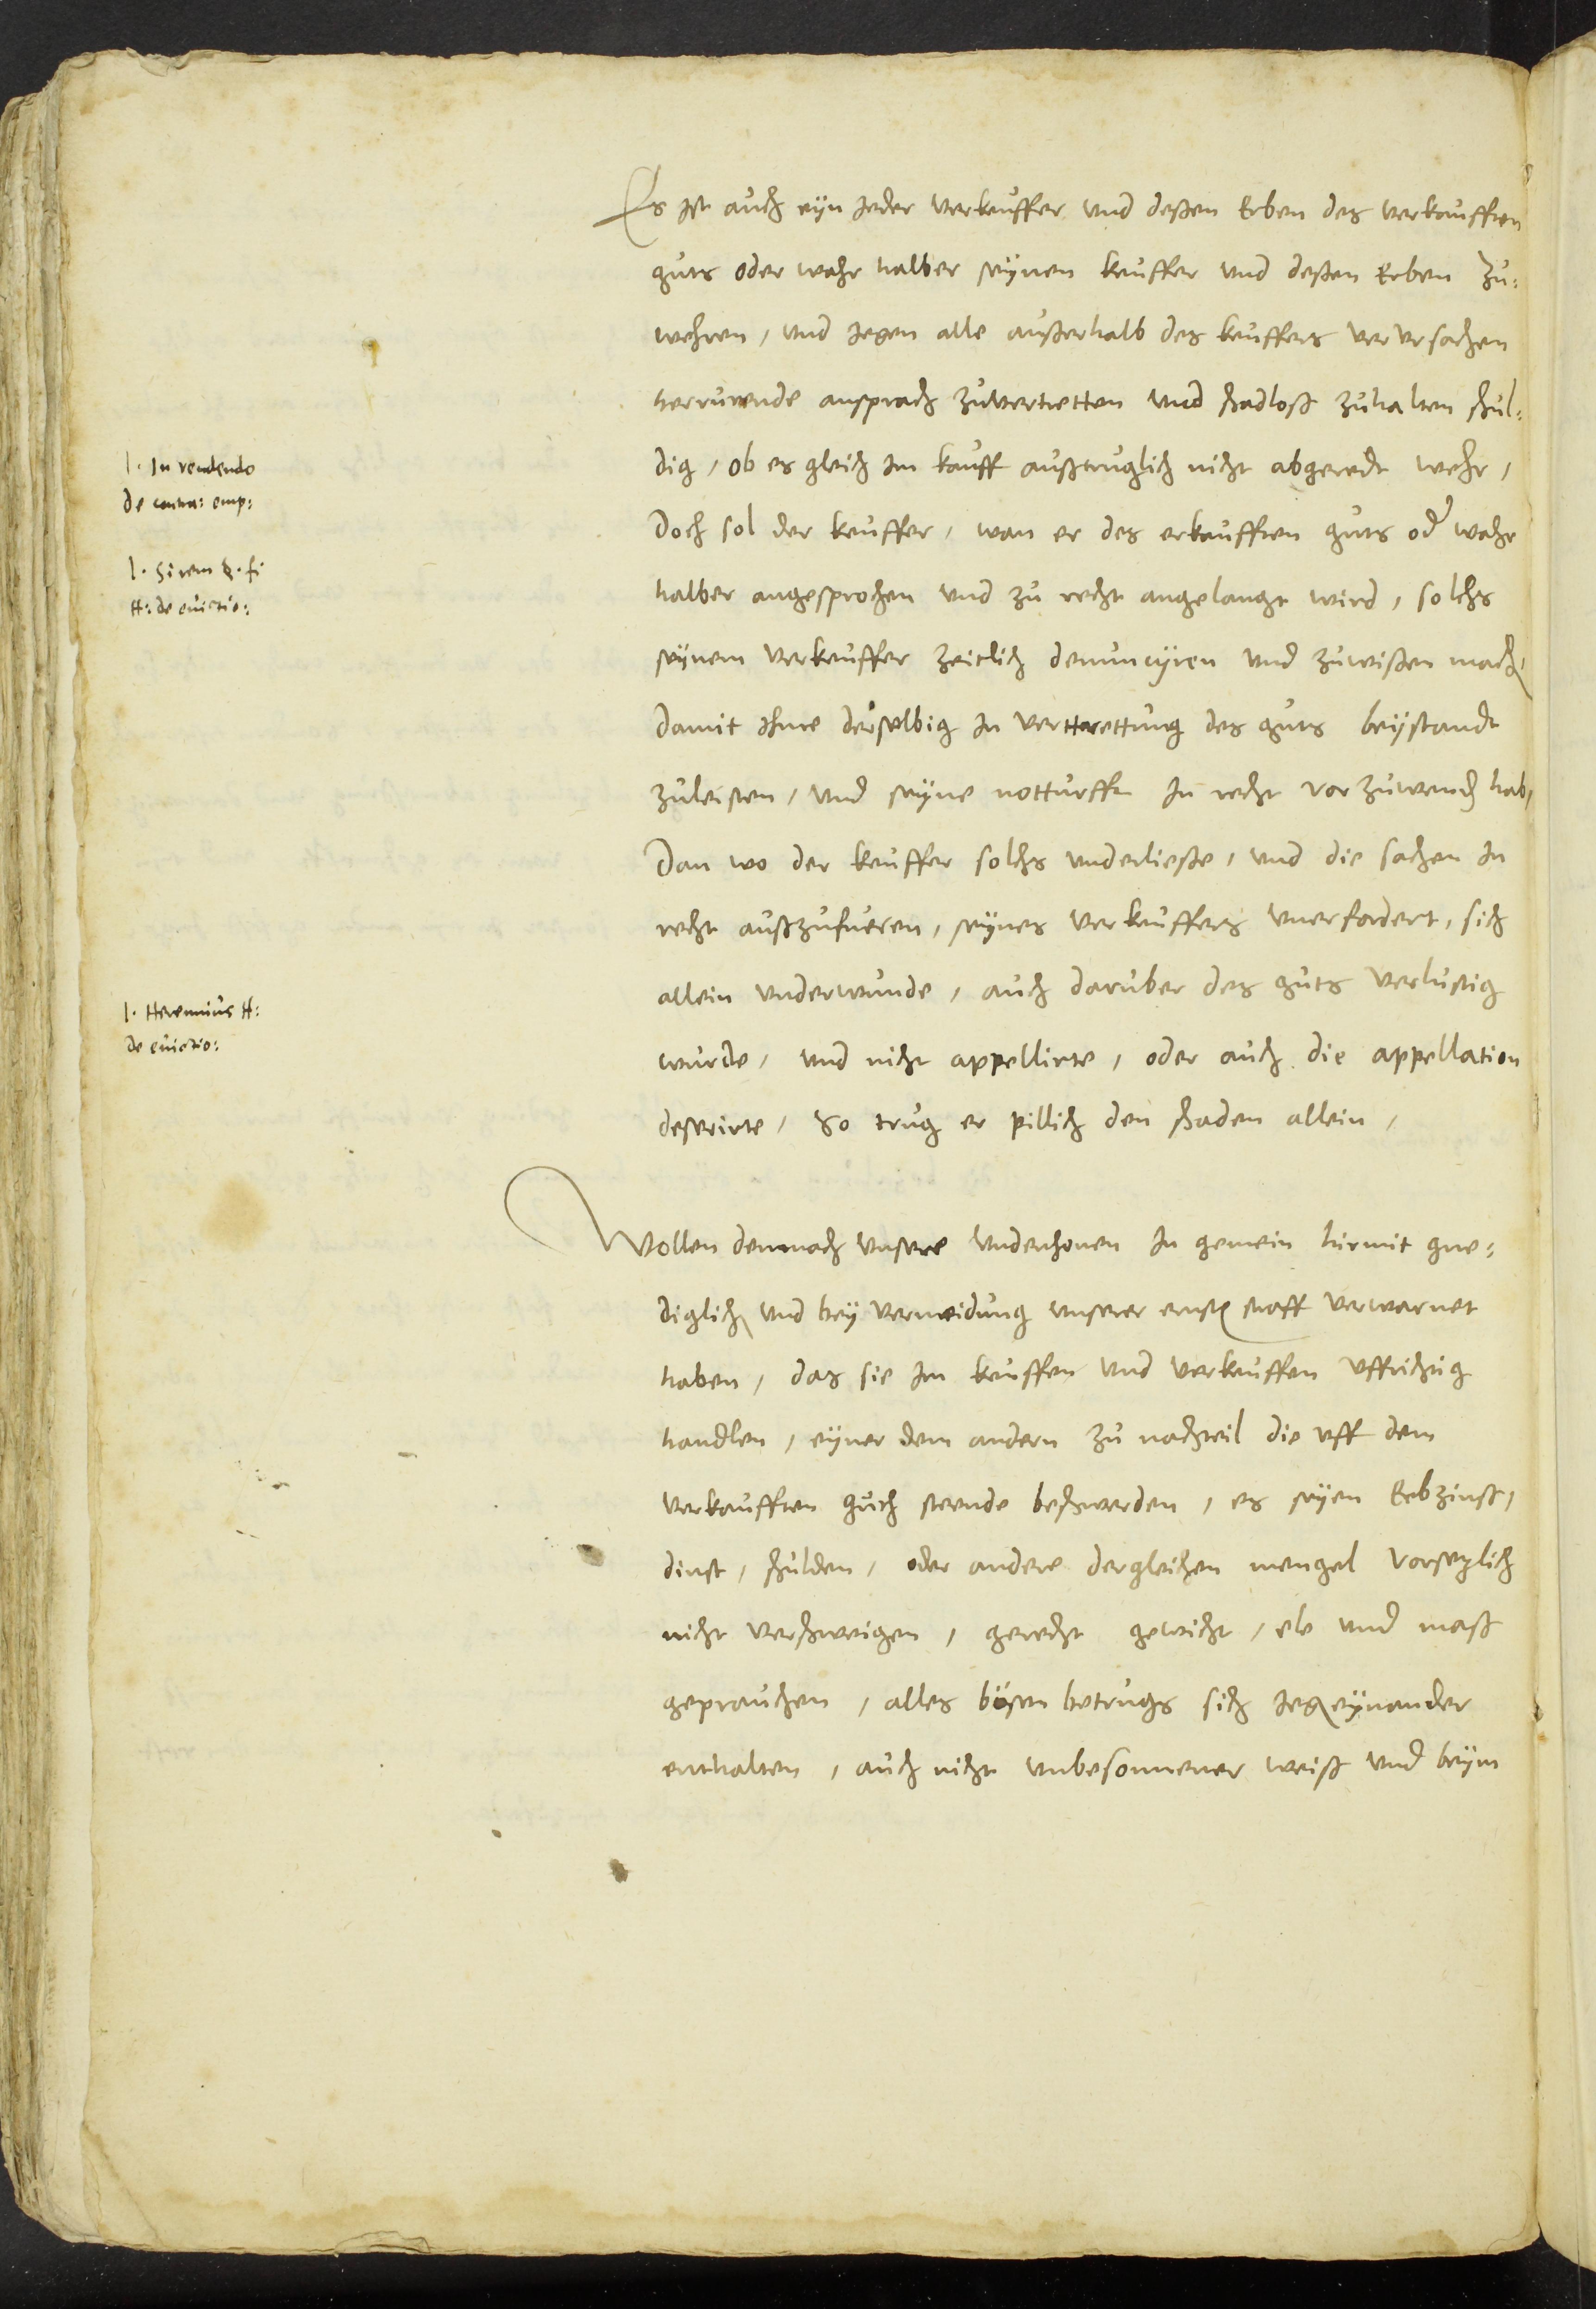 Es ist auch eyn Jeder verkeuffer vnd deßen Erben des verkaufften
guts oder wahr halber seynen keuffer vnd deßen Erben zu-
wehren, vnd Jegen alle außerhalb des keuffers verursachen
herrurende ansprach zuvertretten vnd schadloß zuhalten schul-
dig, ob es gleich Im kauff außtruglich nicht abgeredt wehr,
Doch sol der keuffer, wan er des erkaufften guts oder wahr
halber angesprochen vnd zu recht angelangt wird, solchs
seynem verkeuffer zeitlich denuncyren vnd zuwißen mach,
damit Ihme derselbig In verttrettung des guts beystandt
zuleisten, vnd seyne notturfft In recht vor zuwenden hab,
Dan wo der keuffer solchs underließe, vnd die sachen In
recht außzufueren, seynes verkeuffers vnerfordert, sich
allein vnderwunde, auch daruber des guts verlustig
wurde, vnd nicht appellirte, oder auch die appellation
deserirte, So trug er pillich den schaden allein,
l. In vendendo
de contra: emp:
l. Si rem §. fi
ff: de euictio:
l. Herennius ff:
de euictio:
Wollen demnach vnsere vnderthonen In gemein hirmit gne-
diglich vnd bey vermeidung vnserer ernsten straff verwarnet
haben, das sie Im keuffen vnd verkeuffen vffrichtig
handlen, eyner dem andern zu nachteil die vff dem
verkaufften guth steende beschwerden, es seyen Erbzinß,
dinst, schulden, oder andere dergleichen mengel vorsetzlich
nicht verschweigen, gerecht gewicht, ele vnd maß
geprauchen, alles bösen betrugs sich Jegen eynander
enthalten, auch nicht vnbesonnener weiß vnd beym